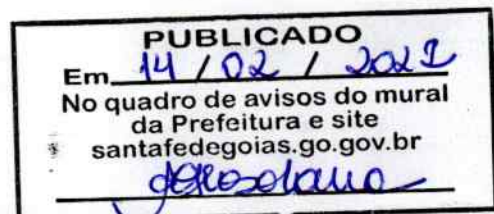 PUBLICADO
Em 14 / 02 / 2021
No quadro de avisos do mural
da Prefeitura e site
santafedegoias.go.gov.br